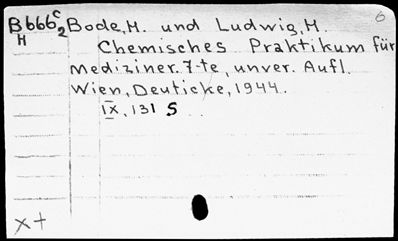 B666c2 Bode, H. und Ludwig, H.
H Chemisches Praktikum für
Mediziner. 7-te, unver. Aufl.
Wien, Deuticke, 1944.
IX, 131 S
6
x+